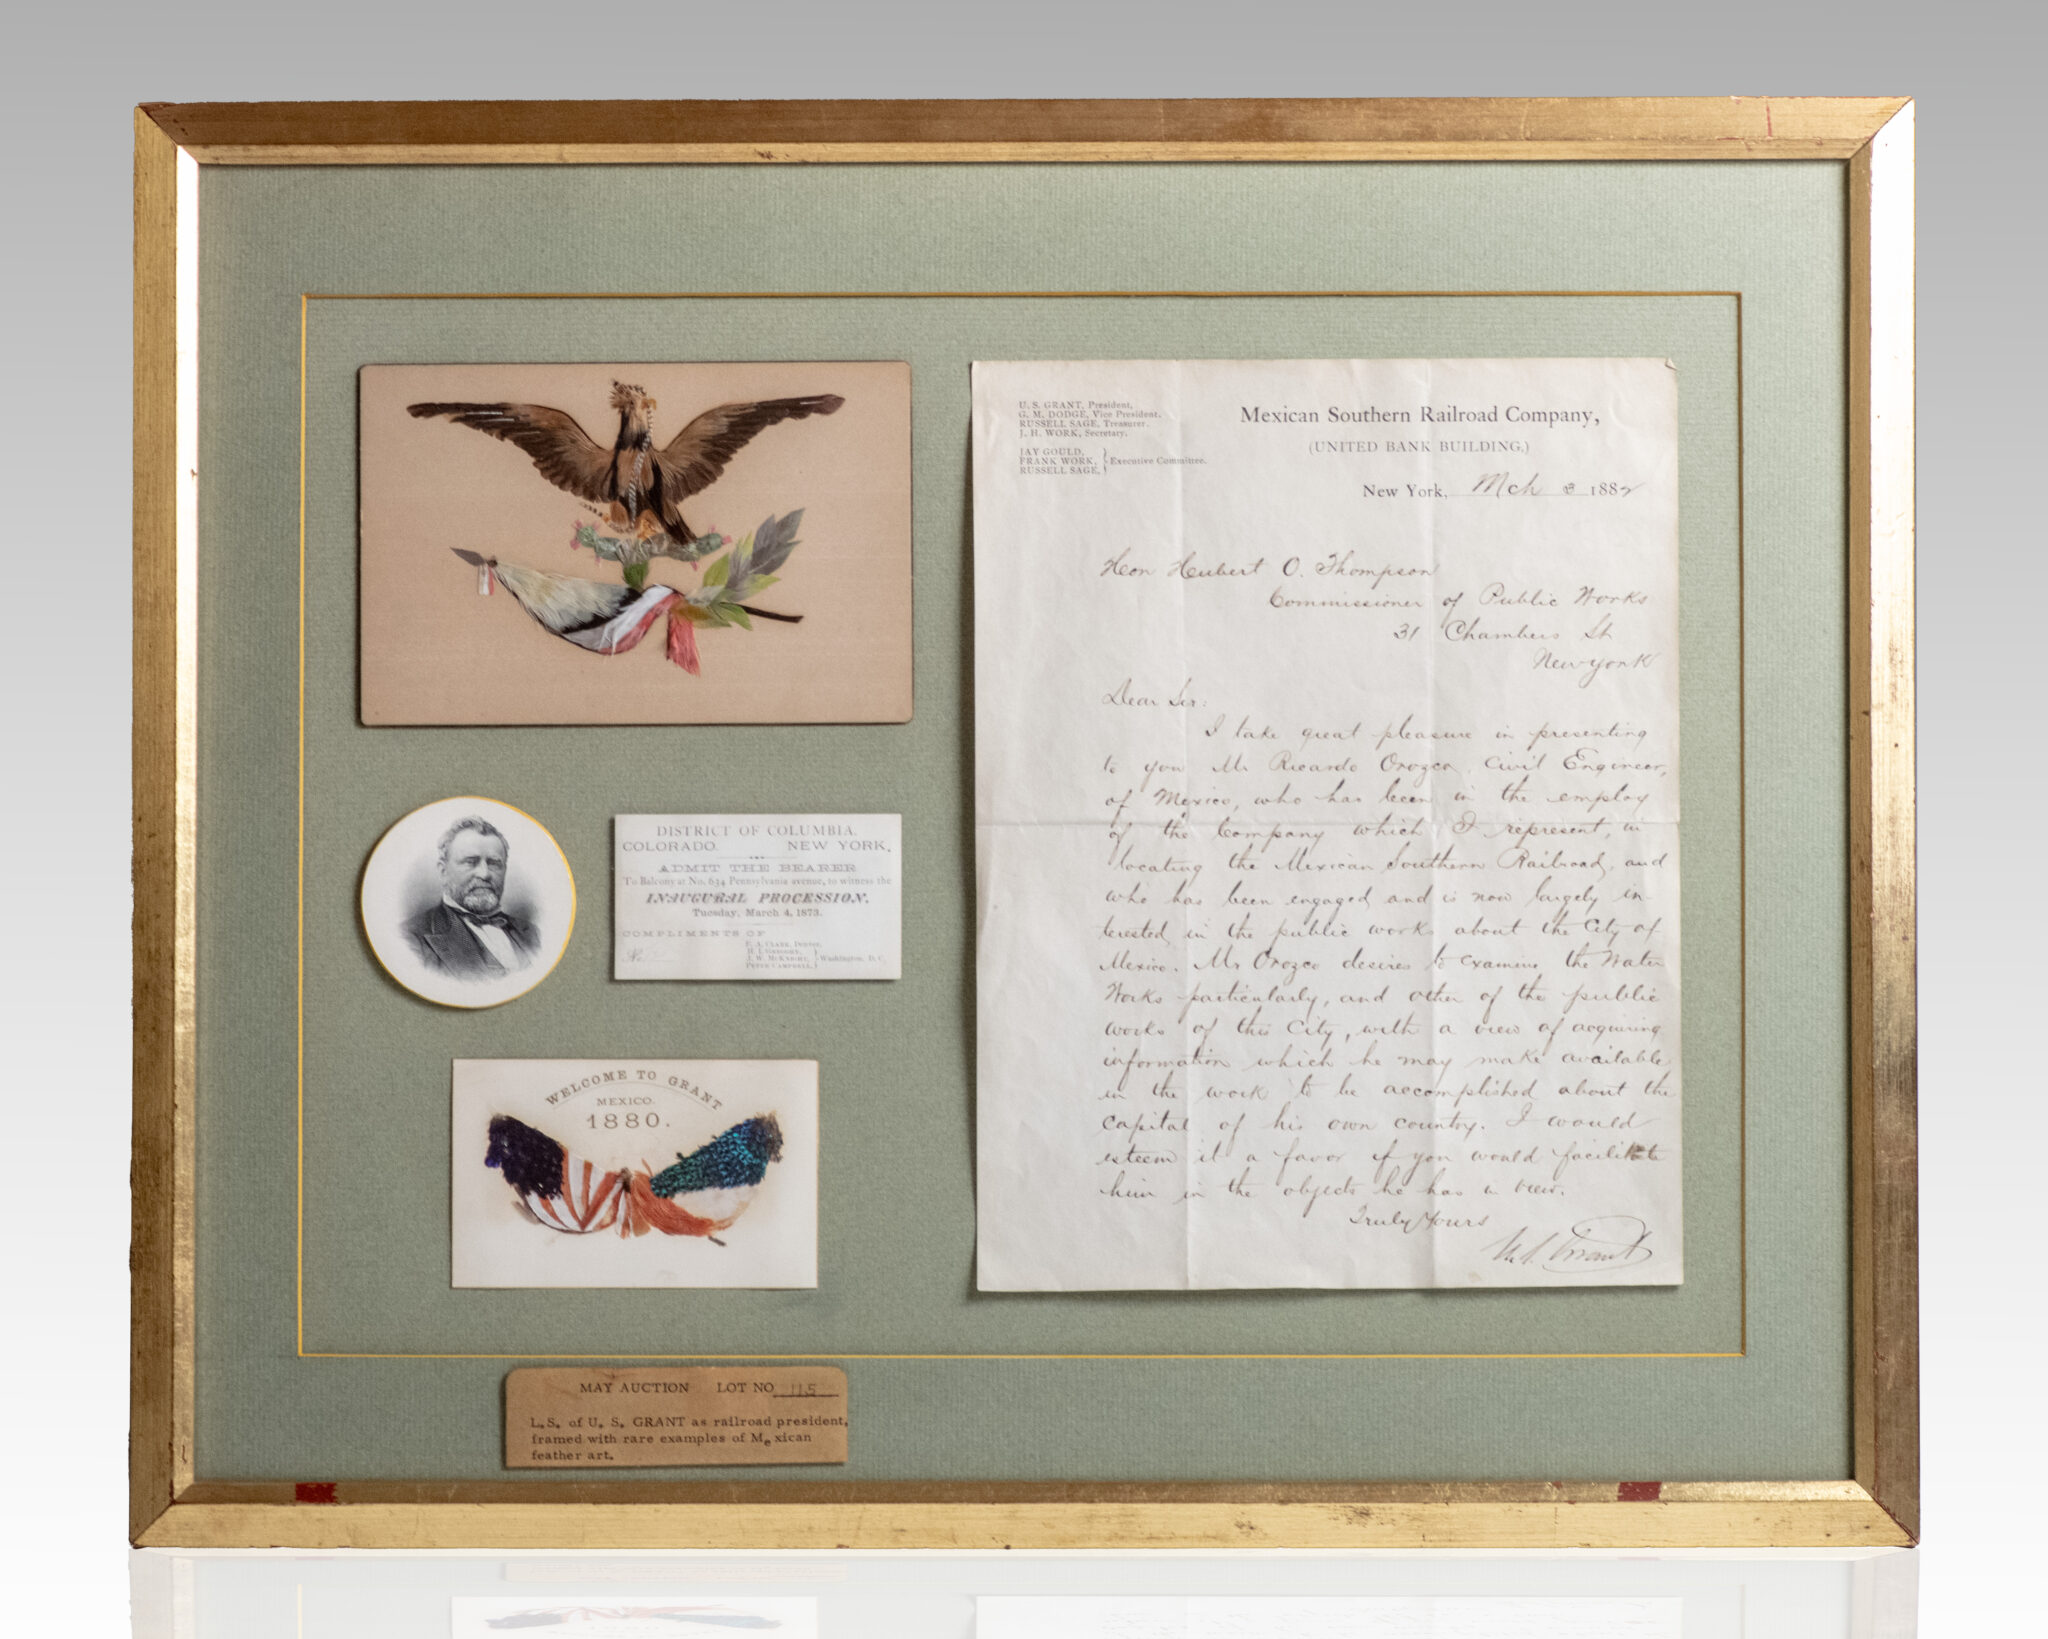 WELCOME TO GRANT
MEXICO.
1880.
DISTRICT OF COLUMBIA.
COLORADO. NEW YORK.
ADMIT THE BEARER
To Balcony at No. 634 Pennsylvania avenue, to witness the
INAUGURAL PROCESSION,
Tuesday, March 4, 1873.
COMPLIMENTS OF
No.
J. W. McKnight,
Peter Campbell,
Washington, D. C.
MAY AUCTION LOT NO 115
L.S. of U. S. GRANT as railroad president,
framed with rare examples of Mexican
feather art.
U. S. GRANT, President,
G. M. DODGE, Vice President.
RUSSELL SAGE, Treasurer.
J. H. WORK, Secretary.
JAY GOULD,
FRANK WORK,
RUSSELL SAGE,
Executive Committee.
Mexican Southern Railroad Company,
(UNITED BANK BUILDING,)
New York, Mch 3 1882
Hon Hubert O. Thompson
Commissioner of Public Works
31 Chambers St
New York
Dear Sir:
I take great pleasure in presenting
to you Mr Ricardo Orozco, Civil Engineer,
of Mexico, who has been in the employ
of the Company which I represent, in
locating the Mexican Southern Railroad, and
who has been engaged and is now largely in-
terested in the public works about the City of
Mexico. Mr Orozco desires to examine the Water
Works particularly, and other of the public
works of this City, with a view of acquiring
information which he may make available
in the work to be accomplished about the
capital of his own country. I would
esteem it a favor if you would facilitate
him in the objects he has in view.
Truly Yours
U. S. Grant